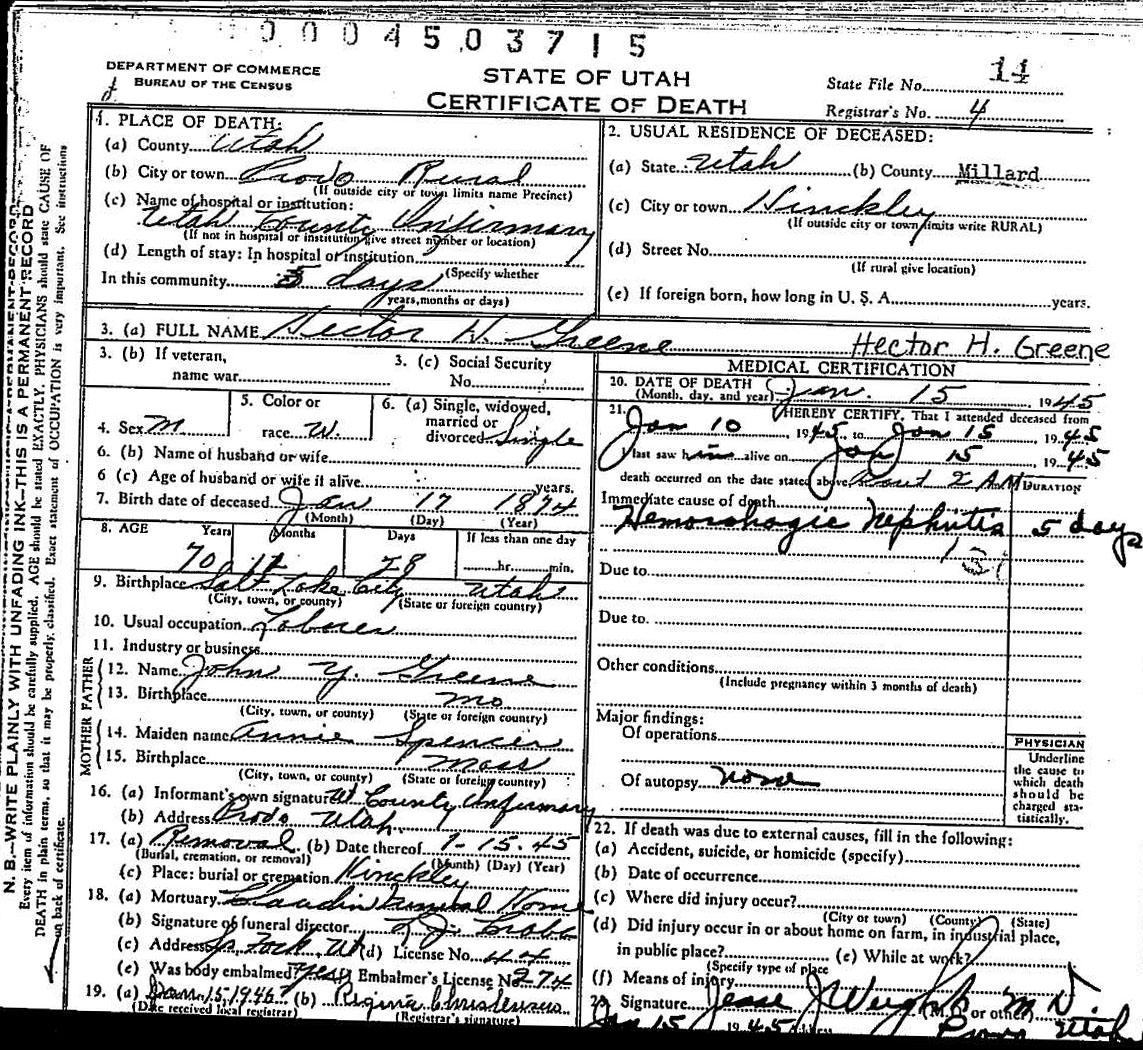 0004503715
DEPARTMENT OF COMMERCE
BUREAU OF THE CENSUS
STATE OF UTAH
CERTIFICATE OF DEATH
State File No. 14
Registrar's No. 4
N. B.—WRITE PLAINLY WITH UNFADING INK—THIS IS A PERMANENT RECORD
Every item of information should be carefully supplied. AGE should be stated EXACTLY. PHYSICIANS should state CAUSE OF
DEATH in plain terms, so that it may be properly classified. Exact statement of OCCUPATION is very important. See instructions
on back of certificate.
1. PLACE OF DEATH:
(a) County Utah
(b) City or town Provo Rural
(If outside city or town limits name Precinct)
(c) Name of hospital or institution:
Utah County Infirmary
(If not in hospital or institution give street number or location)
(d) Length of stay: In hospital or institution
(Specify whether
In this community 5 days
years, months or days)
2. USUAL RESIDENCE OF DECEASED:
(a) State Utah (b) County Millard
(c) City or town Hinckley
(If outside city or town limits write RURAL)
(d) Street No.
(If rural give location)
(e) If foreign born, how long in U. S. A. years.
3. (a) FULL NAME Hector H. Greene Hector H. Greene
3. (b) If veteran,
name war
3. (c) Social Security
No.
4. Sex M
5. Color or
race W.
6. (a) Single, widowed,
married or
divorced Single
6. (b) Name of husband or wife
6 (c) Age of husband or wife if alive years.
7. Birth date of deceased Jan 17 1874
(Month) (Day) (Year)
8. AGE Years Months Days If less than one day
70 28 hr. min.
9. Birthplace Salt Lake City Utah
(City, town, or county) (State or foreign country)
10. Usual occupation Laborer
11. Industry or business
FATHER
12. Name John Y. Greene
13. Birthplace Mo
(City, town, or county) (State or foreign country)
MOTHER
14. Maiden name Annie Spencer
15. Birthplace Mass
(City, town, or county) (State or foreign country)
16. (a) Informant's own signature Ut County Infirmary
(b) Address Provo Utah.
17. (a) Removal (b) Date thereof 1-15-45
(Burial, cremation, or removal) (Month) (Day) (Year)
(c) Place: burial or cremation Hinckley
18. (a) Mortuary Claudin Funeral Home
(b) Signature of funeral director
(c) Address Sp Fork Ut (d) License No. 44
(e) Was body embalmed? Yes Embalmer's License No 274
19. (a) Jan 15, 1946 (b) Regina Christensen
(Date received local registrar) (Registrar's signature)
MEDICAL CERTIFICATION
20. DATE OF DEATH
(Month, day, and year) Jan. 15 1945
21. I HEREBY CERTIFY, That I attended deceased from
Jan 10 1945, to Jan 15 1945
I last saw him alive on Jan 15 1945
death occurred on the date stated above, about 2 AM DURATION
Immediate cause of death
Hemorrhagic Nephritis 5 days
Due to
Due to.
Other conditions
(Include pregnancy within 3 months of death)
Major findings:
Of operations
Of autopsy none
PHYSICIAN
Underline
the cause to
which death
should be
charged sta-
tistically.
22. If death was due to external causes, fill in the following:
(a) Accident, suicide, or homicide (specify)
(b) Date of occurrence
(c) Where did injury occur?
(City or town) (County) (State)
(d) Did injury occur in or about home on farm, in industrial place,
in public place? (e) While at work?
(Specify type of place
(f) Means of injury
23. Signature Jesse J Weight M D
(M.D. or other)
Jan 15 1945 Address Provo Utah